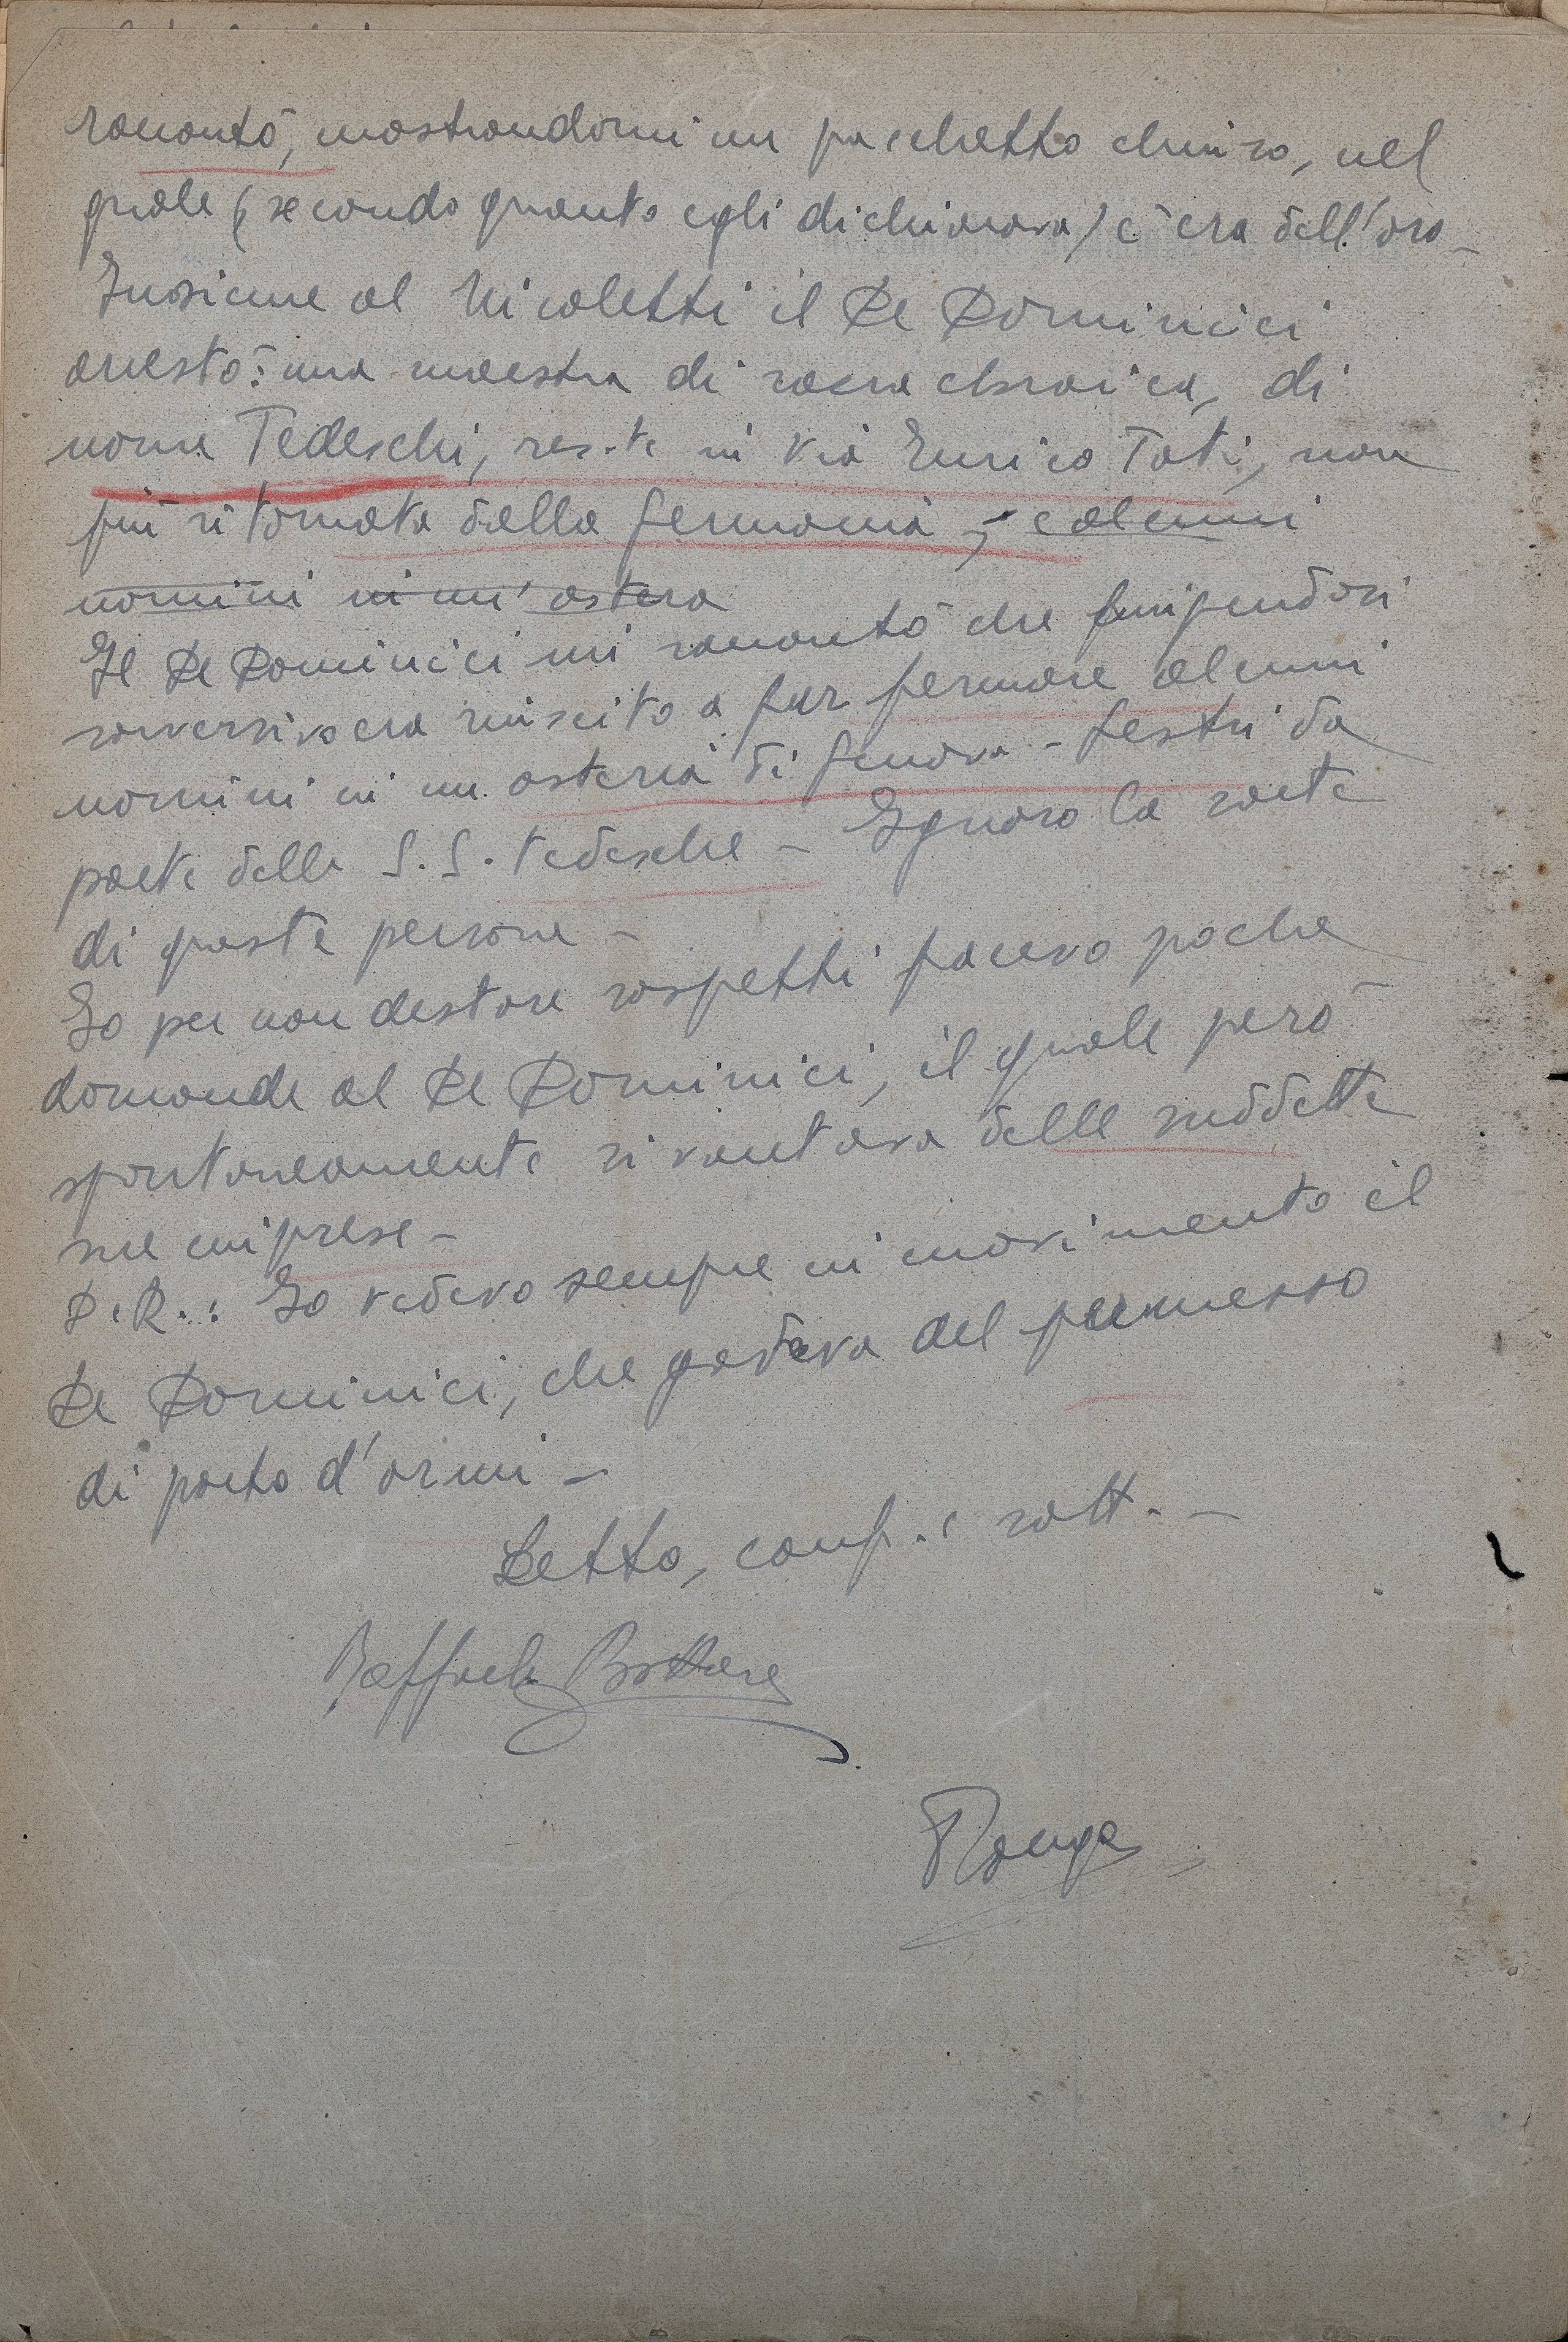 raccontò, mostrandomi un pacchetto chiuso, nel
quale (secondo quanto egli dichiarava) c'era dell'oro –
Insieme al Nicoletti il De Dominici
arrestò: una maestra di razza ebraica, di
nome Tedeschi, res.te in Via Enrico Toti, non
più ritornata dalla Germania; e alcuni
uomini in un' astera
Il De Dominici mi raccontò che fingendosi
sovversivo era riuscito a far fermare alcuni
uomini in un osteria di Genova - Sestri da
parte delle S.S. tedesche – Ignoro la sorte
di queste persone –
Io per non destare sospetti facevo poche
domande al De Dominici, il quale però
spontaneamente si vantava delle suddette
sue imprese –
D.R.: Io vedevo sempre in movimento il
De Dominici, che godeva del permesso
di porto d'armi –
Letto, conf. e sott. –
Raffaele